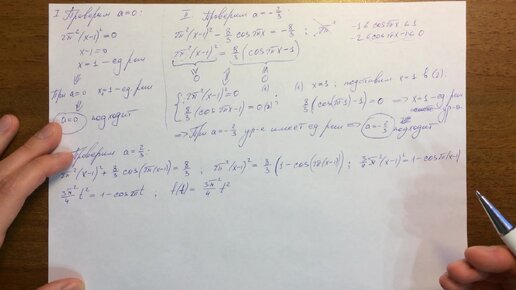 I Проверим a=0:
2π²(x-1)²=0
x-1=0
x=1 - ед. реш
При a=0 x=1 - ед реш
a=0 подходит
II Проверим a=-2/3:
2π²(x-1)² - 8/3 cosπx = -8/3 ;
2π²(x-1)² = 8/3 (cosπx-1)
-1≤cosπx≤1
-2≤cosπx-1≤0
{ 2π²(x-1)²=0 (1)
8/3 (cosπx-1)=0 (2) ;
(1) x=1 ; подставим x=1 в (2):
8/3 (cosπ·1-1)=0 ⇒ x=1 - ед реш
⇒ При a=-2/3 ур-е имеет ед реш ⇒ a=-2/3 подходит
Проверим a=2/3:
2π²(x-1)² + 8/3 cos(π(x-1)) = 8/3 ; 2π²(x-1)² = 8/3 (1-cos(π(x-1))) ; 3π²/4 (x-1)² = 1-cosπ(x-1)
3π²/4 t² = 1-cosπt ; f(t) = 3π²/4 t²